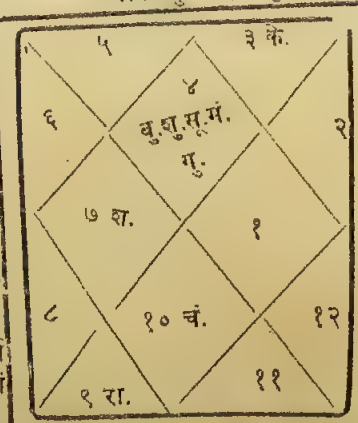 ५
३ के.
४
बु.शु.सू.मं.
गु.
६
२
७ श.
१
८
१० चं.
१२
९ रा.
११